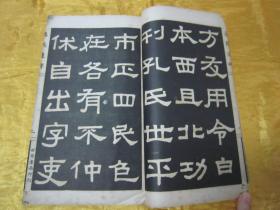 方友用令白
本西且北功
刊孔氏世平
市正四民色
在各有不仲
休自出字吏